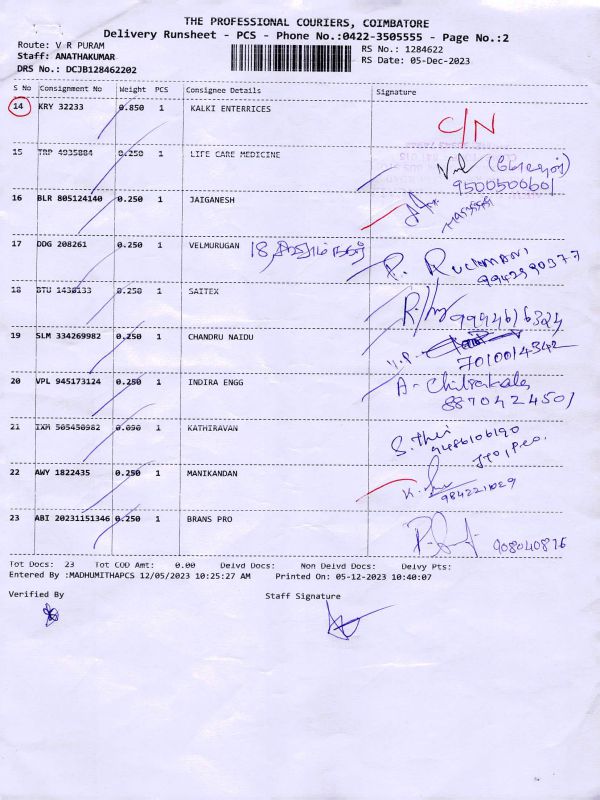 THE PROFESSIONAL COURIERS, COIMBATORE
Delivery Runsheet - PCS - Phone No.:0422-3505555 - Page No.:2
Route: V R PURAM
RS No.: 1284622
Staff: ANATHAKUMAR
RS Date: 05-Dec-2023
DRS No.: DCJB128462202
S No Consignment No Weight PCS Consignee Details Signature
14 KRY 32233 0.850 1 KALKI ENTERRICES C/N
15 TRP 4935884 0.250 1 LIFE CARE MEDICINE
9500500601
16 BLR 805124140 0.250 1 JAIGANESH
17 DDG 208261 0.250 1 VELMURUGAN 18, P. RUCUMANI
9942390377
18 BTU 1438133 0.250 1 SAITEX 9994616324
19 SLM 334269982 0.250 1 CHANDRU NAIDU
7010014342
20 VPL 945173124 0.250 1 INDIRA ENGG A- Chitrakala
8870424501
21 IXM 505450982 0.090 1 KATHIRAVAN
9486106190
22 AWY 1822435 0.250 1 MANIKANDAN
9842221029
23 ABI 20231151346 0.250 1 BRANS PRO 908040876
Tot Docs: 23 Tot COD Amt: 0.00 Delvd Docs: Non Delvd Docs: Delvy Pts:
Entered By :MADHUMITHAPCS 12/05/2023 10:25:27 AM Printed On: 05-12-2023 10:40:07
Verified By Staff Signature